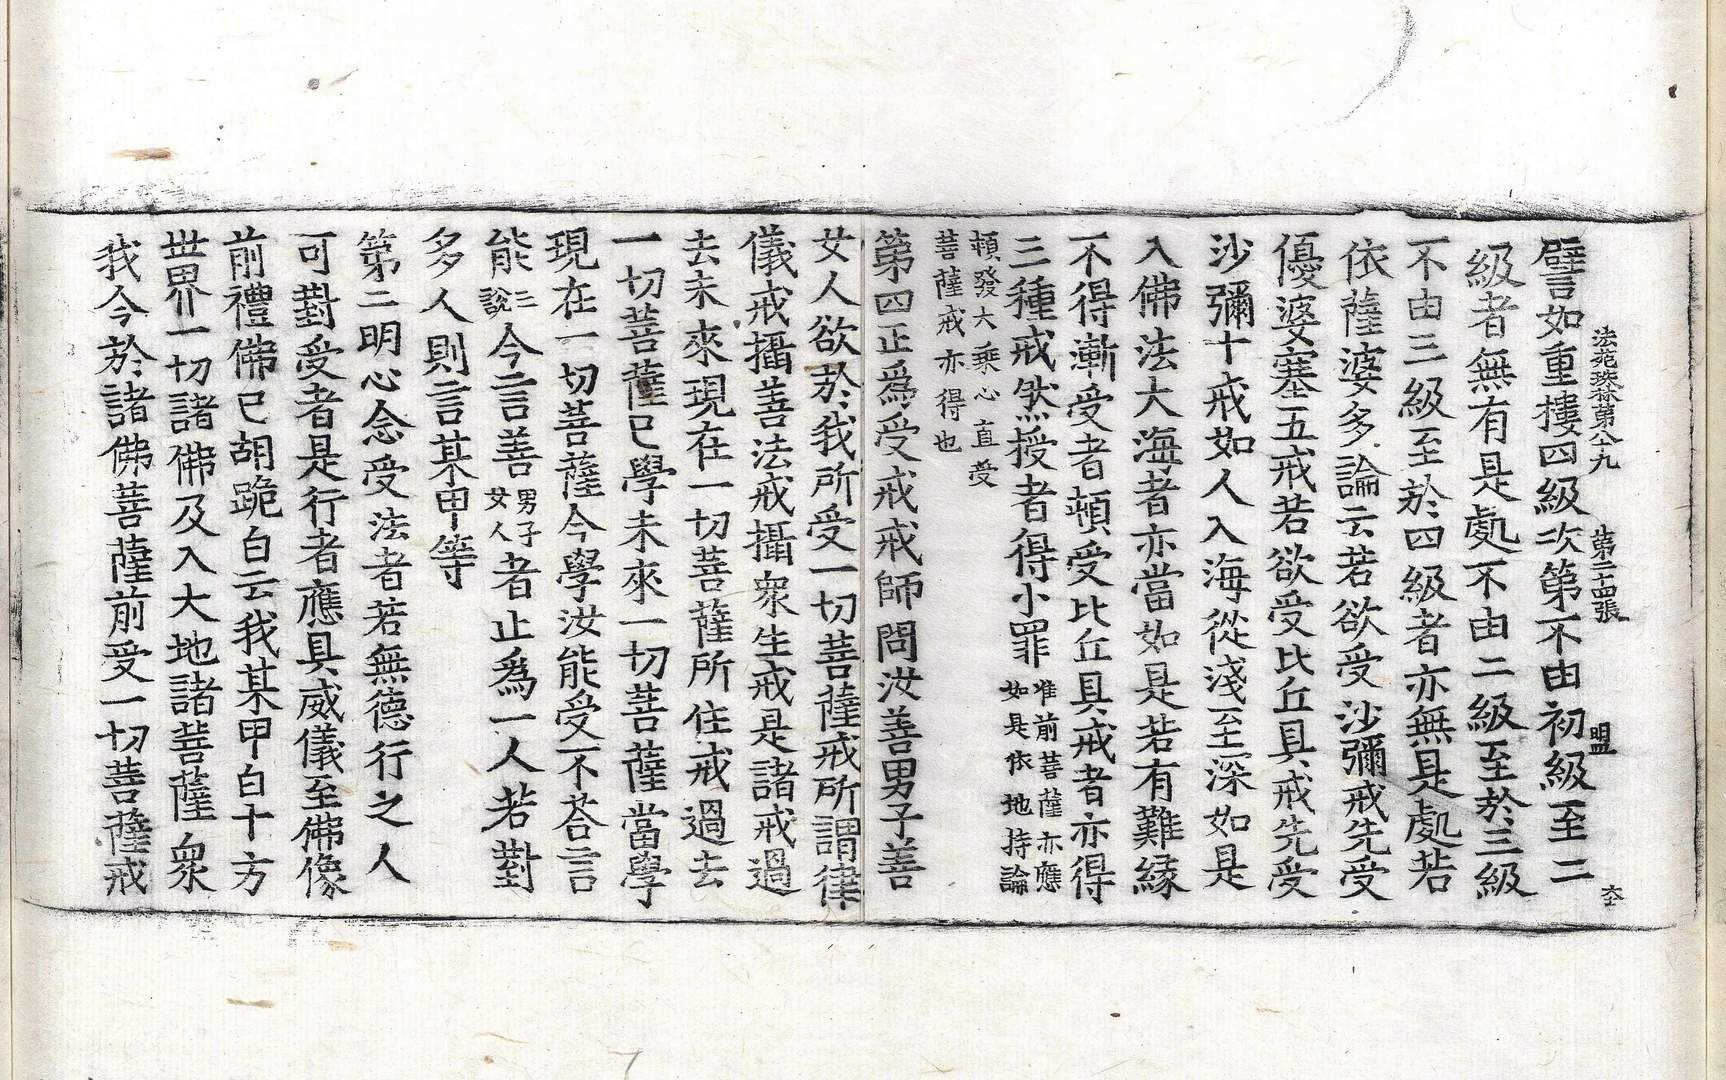 法苑珠林第八十九 第二十四張 盟 大
譬如重樓四級次第不由初級至二
級者無有是處不由二級至於三級
不由三級至於四級者亦無是處若
依薩婆多論云若欲受沙彌戒先受
優婆塞五戒若欲受比丘具戒先受
沙彌十戒如人入海從淺至深如是
入佛法大海者亦當如是若有難緣
不得漸受者頓受比丘具戒者亦得
三種戒然授者得小罪准前菩薩亦應
如是依地持論
頓發大乘心直受
菩薩戒亦得也
第四正爲受戒戒師問汝善男子善
女人欲於我所受一切菩薩戒所謂律
儀戒攝善法戒攝衆生戒是諸戒過
去未來現在一切菩薩所住戒過去
一切菩薩已學未來一切菩薩當學
現在一切菩薩今學汝能受不荅言
能三說今言善男子女人者止爲一人若對
多人則言某甲等
第二明心念受法者若無德行之人
可對受者是行者應具威儀至佛像
前禮佛已胡跪白云我某甲白十方
世界一切諸佛及入大地諸菩薩衆
我今於諸佛菩薩前受一切菩薩戒